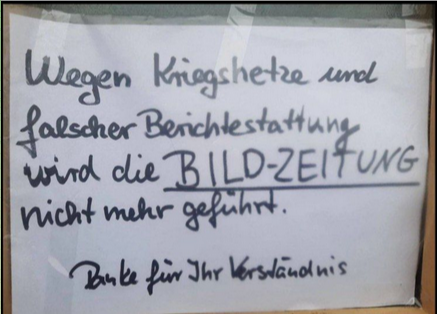 Wegen Kriegshetze und
falscher Berichtestattung
wird die BILD-ZEITUNG
nicht mehr geführt.
Danke für Ihr Verständnis